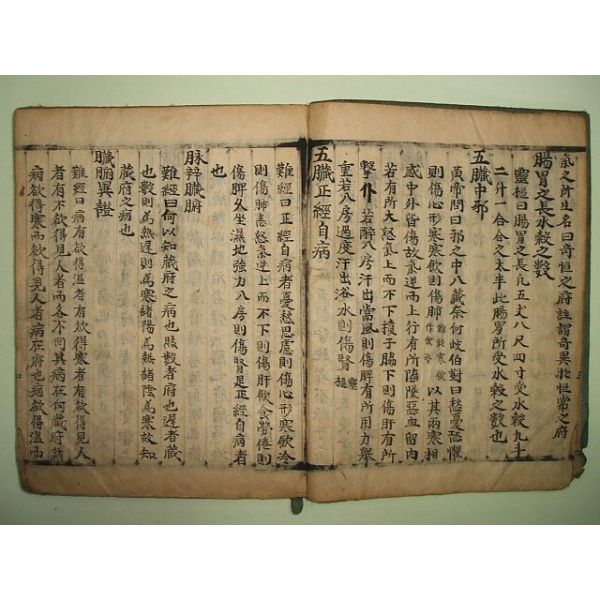 氣之所生名曰奇恒之府註謂奇異於恒常之府
腸胃之長水穀之數
靈樞曰腸胃之長凡五丈八尺四寸受水穀九斗
二升一合合之太半此腸胃所受水穀之數也
五臟中邪
黃帝問曰邪之中人藏奈何岐伯對曰愁憂恐懼
則傷心形寒寒飲則傷肺難經寒飲作飲冷以其兩寒相
感中外皆傷故氣逆而上行有所墮墜惡血留內
若有所大怒氣上而不下積于脇下則傷肝有所
擊仆若醉入房汗出當風則傷脾有所用力擧
重若入房過度汗出浴水則傷腎靈樞
五臟正經自病
難經曰正經自病者憂愁思慮則傷心形寒飲冷
則傷肺恚怒氣逆上而不下則傷肝飮食勞倦則
傷脾久坐濕地強力入房則傷腎是正經自病者
也
脉辨臟腑
難經曰何以知藏府之病也然數者府也遲者藏
也數則爲熱遲則爲寒諸陽爲熱諸陰爲寒故知
藏府之病也
臟腑異證
難經曰病有欲得溫者有欲得寒者有欲得見人
者有不欲得見人者而各不同其病在何藏府然
病欲得寒而欲得見人者病在府也病欲得溫而